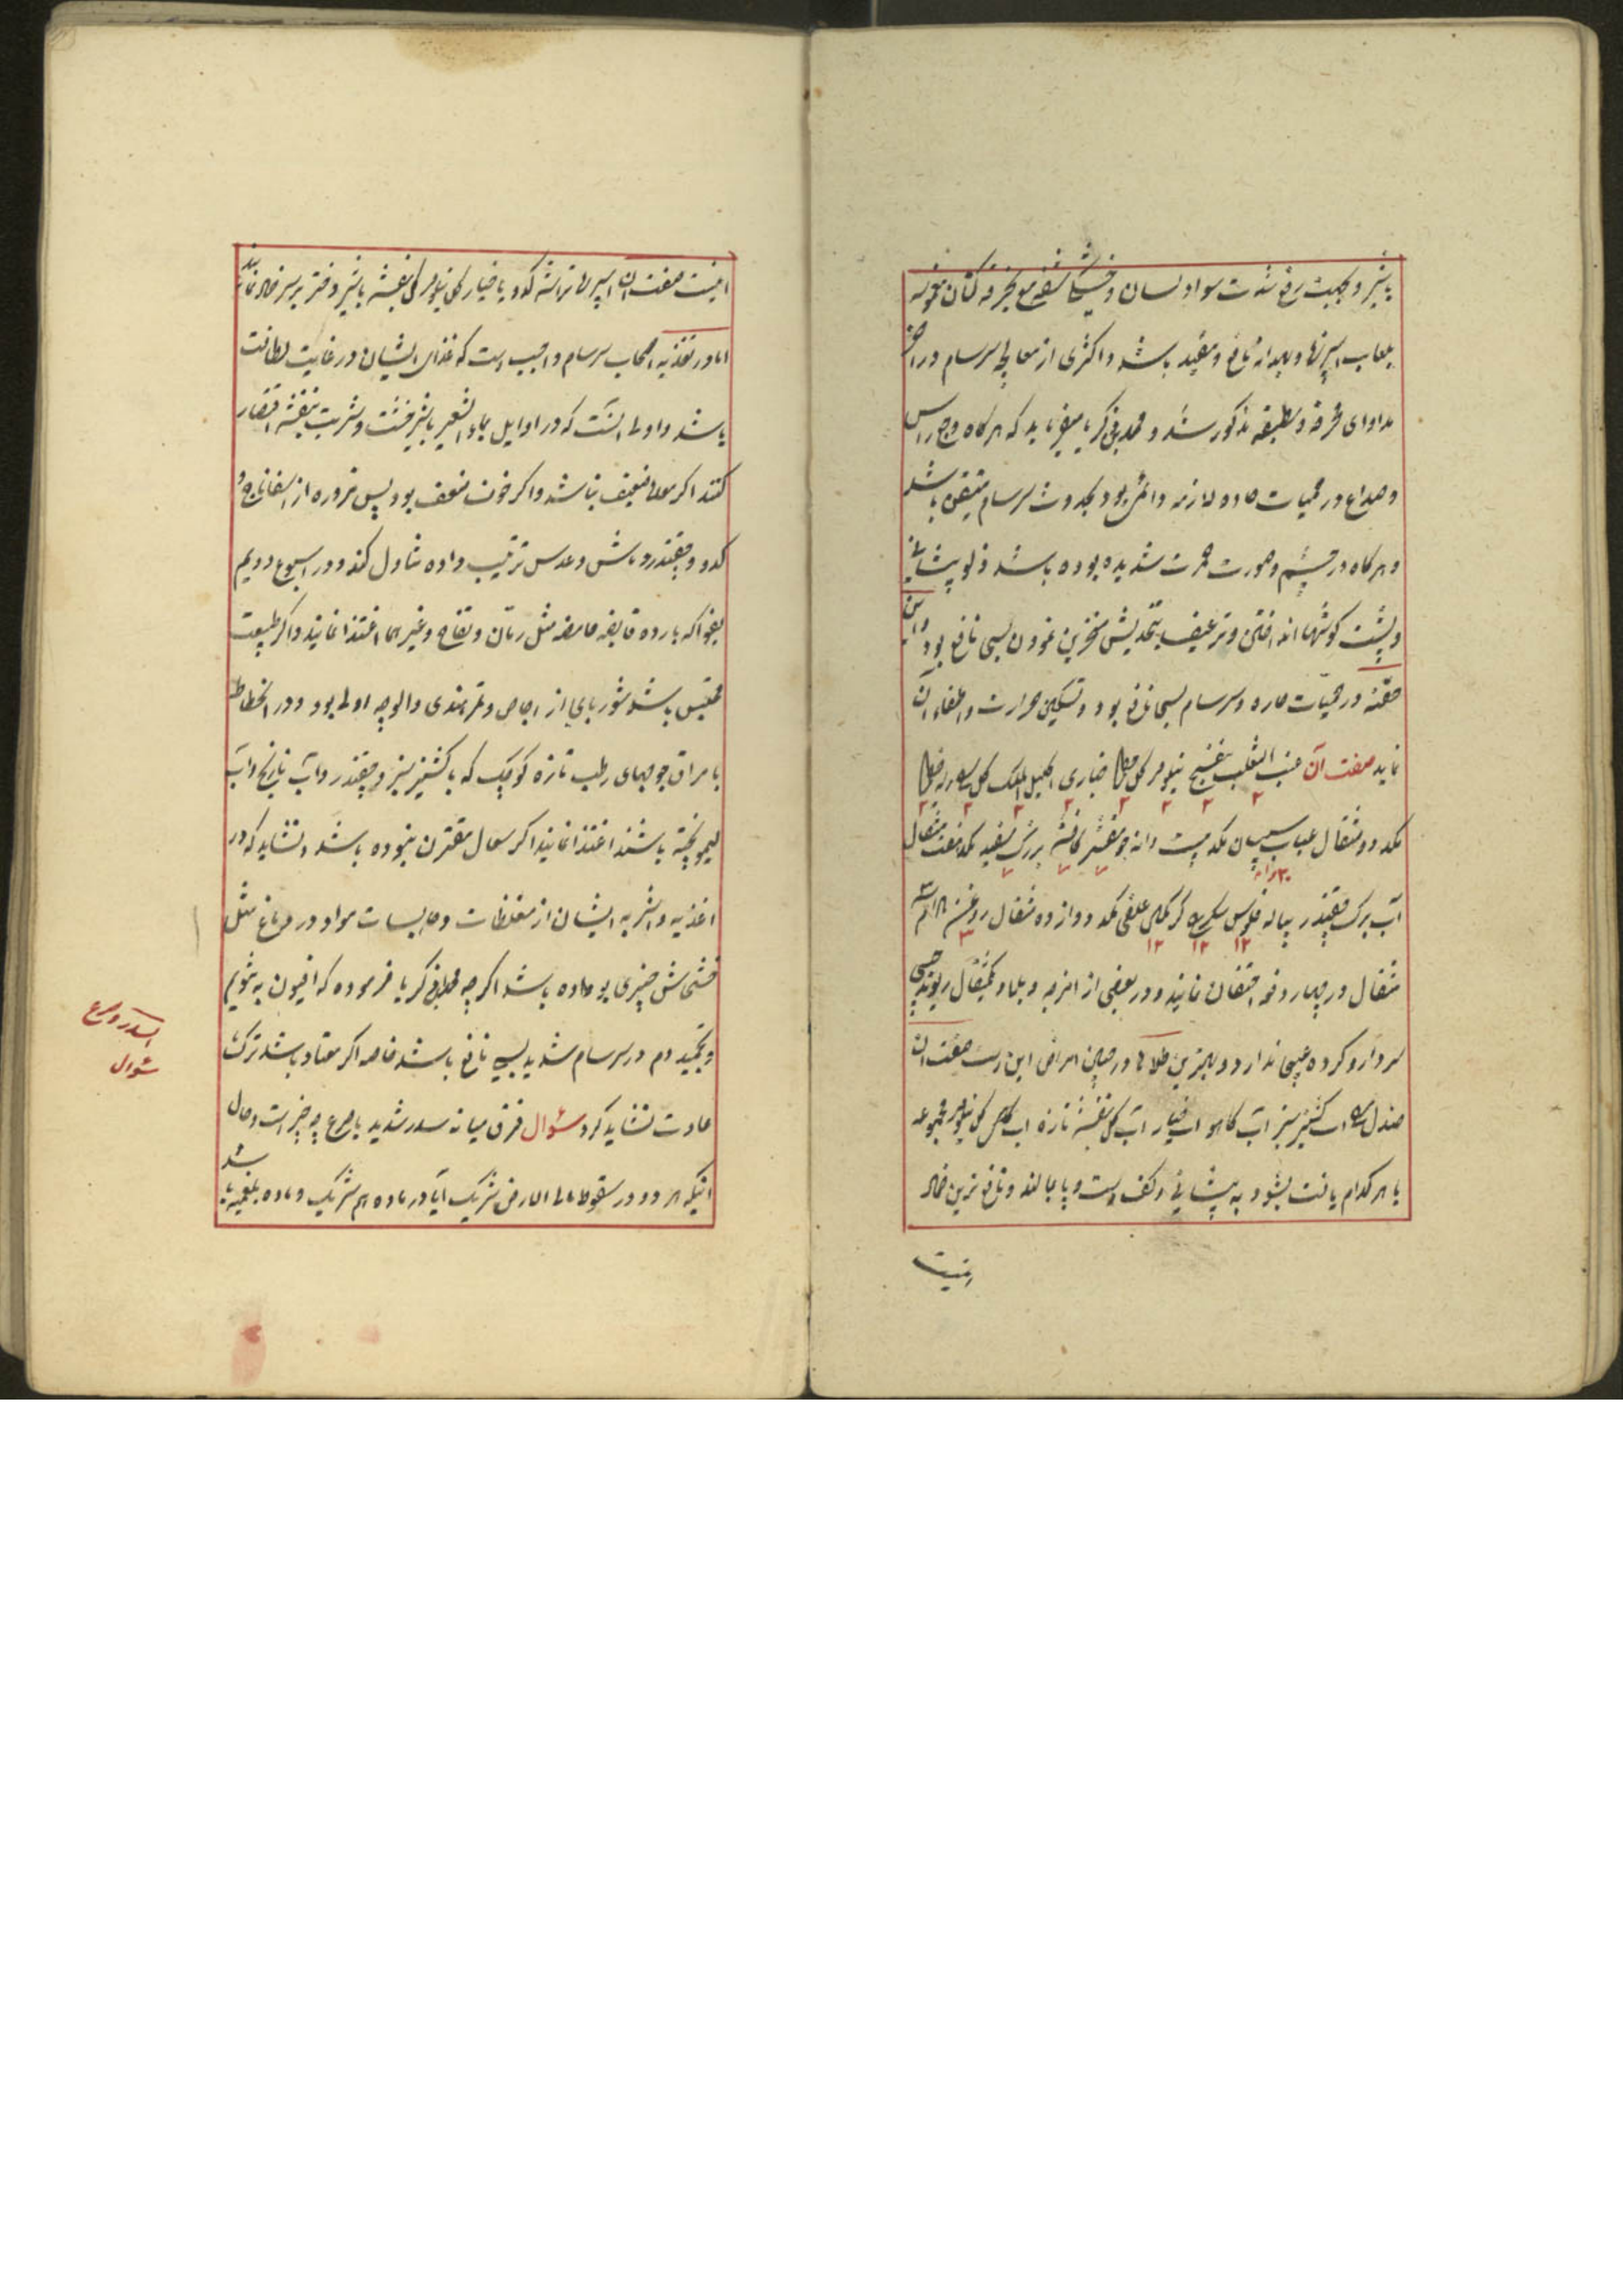 باشیر و بجهت رفع شدت سواد لسان و خشکی شفه مع بخرقه کتان
بلعاب اسپرزها و بهدانه نافع و مفید باشد و اکثری از معالجه سرسام در
مداوای و مطبقه مذکور شد و محمد بن زکریا میفرماید که هرکاه وجع راس
و صداع در حمیات حاده لازمه دائمی بود بحدوث سرسام متیقن باشند
و هرکاه در چشم و صورت حمرت شدیده بوده باشد زلو پیشانی
و پشت کوشها انداختن و ترعیف بتخدیش منخرین نمودن بسی نافع بود و این
حقنه در حمیات حاره و سرسام بسی نافع بود و تسکین حرارت و اطفاء آن
نماید صفت آن عنب الثعلب بنفسج نیلوفر کل خطمی خبازی اکلیل الملک کل
۲ ۲ ۲ ۲ ۲ ۲ ۲ ۲
مکد دو مثقال عناب سپستان مکد بیست دانه جو مقشر برزک سفید مکد هفت مثقال
۲۰ دانه ۷ ۷ ۷
آب برک چقندر پیاله فلوس شکر علفی مکد دوازده مثقال روغن
۱۲ ۱۲ ۱۲ ۳
مثقال در چهار دفعه احتقان نمایند و در بعضی از امزجه و بلاد یکمثقال ریوند چینی
سردارو کرده عیبی ندارد و بهترین طلاها در چنین امراض این است صفت آن
صندل آب کشنیز سبز آب کاهو آب خیار آب کل بنفشه تازه آب کل نیلوفر مجموعه
یا هرکدام یافت بشود به پیشانی و کف دست و پا بمالند و نافع ترین ضماد
اینست
اینست صفت آن اسپرزها تراشه کدو یا خیار کل نیلوفر کل بنفشه باشیر دختر بر سر ضماد نمایند
اما در تغذیه اصحاب سرسام واجب است که غذای ایشان در غایت لطافت
باشد و اولی آنست که در اوایل بماء الشعیر باشیر خشت و شربت بنفشه اقتصار
کنند اکر معده ضعیف نباشد و اکر خوف ضعف بود پس مزوره از اسفاناج و
کدو و چقندر و ماش و عدس ترتیب داده تناول کند و در اسبوع دویم
بفواکه بارده قابضه حامضه مثل رمان و تفاح و غیرهما اغتذا نمایند و اکر طبیعت
محتبس باشد شوربای از اجاص و تمر هندی و آلوچه اولی بود و در انحطاط
بامراق جوجهای رطب تازه کوچک که با کشنیز سبز و چقندر و آب نارنج و آب
لیمو پخته باشند اغتذا نمایند اکر سعال مقترن نبوده باشد و نشاید که در
اغذیه و اشربه ایشان از مغلظات و حابسات مواد در دماغ مثل
خشخاش چیزی بوداده باشد اکرچه محمد بن زکریا فرموده که افیون به تنویم
و تجمید دم در سرسام شدید بسی نافع باشد خاصه اکر معتاد باشد ترک
عادت نشاید کرد سؤال فرق میانه سدر شدید با صرع چه چیز است و حال
آنیکه هر دو در سقوط علی الارض شریک آیا در ماده هم شریک و ماده بلغمیه باشد
السدر و صرع
سؤال